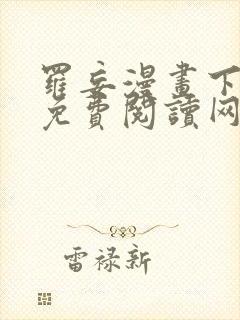 羅妄漫畫下
免費閱讀网
雷禄新